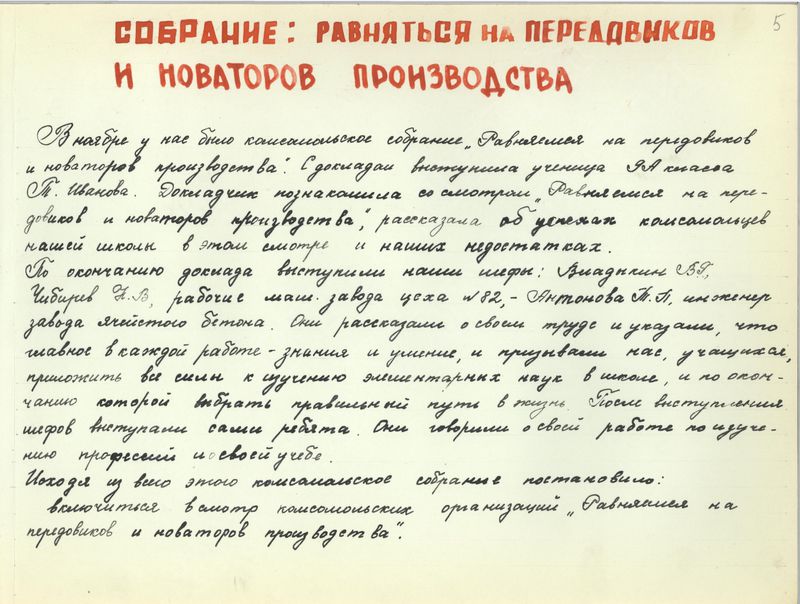 5
СОБРАНИЕ: РАВНЯТЬСЯ НА ПЕРЕДОВИКОВ
И НОВАТОРОВ ПРОИЗВОДСТВА
В ноябре у нас было комсомольское собрание „Равняемся на передовиков
и новаторов производства". С докладом выступила ученица 9А класса
Т. Иванова. Докладчик познакомила со смотром „Равняемся на пере-
довиков и новаторов производства", рассказала об успехах комсомольцев
нашей школы в этом смотре и наших недостатках.
По окончанию доклада выступили наши шефы: Владыкин В.Г,
Чибирев Н.В, рабочие маш. завода цеха №82,- Антонова Т.П, инженер
завода ячеистого бетона. Они рассказали о своем труде и указали, что
главное в каждой работе - знания и умение, и призывали нас, учащихся,
приложить все силы к изучению элементарных наук в школе, и по окон-
чанию которой выбрать правильный путь в жизнь. После выступления
шефов выступали сами ребята. Они говорили о своей работе по изуче-
нию профессий и о своей учебе.
Исходя из всего этого комсомольское собрание постановило:
включиться в смотр комсомольских организаций „Равняемся на
передовиков и новаторов производства".